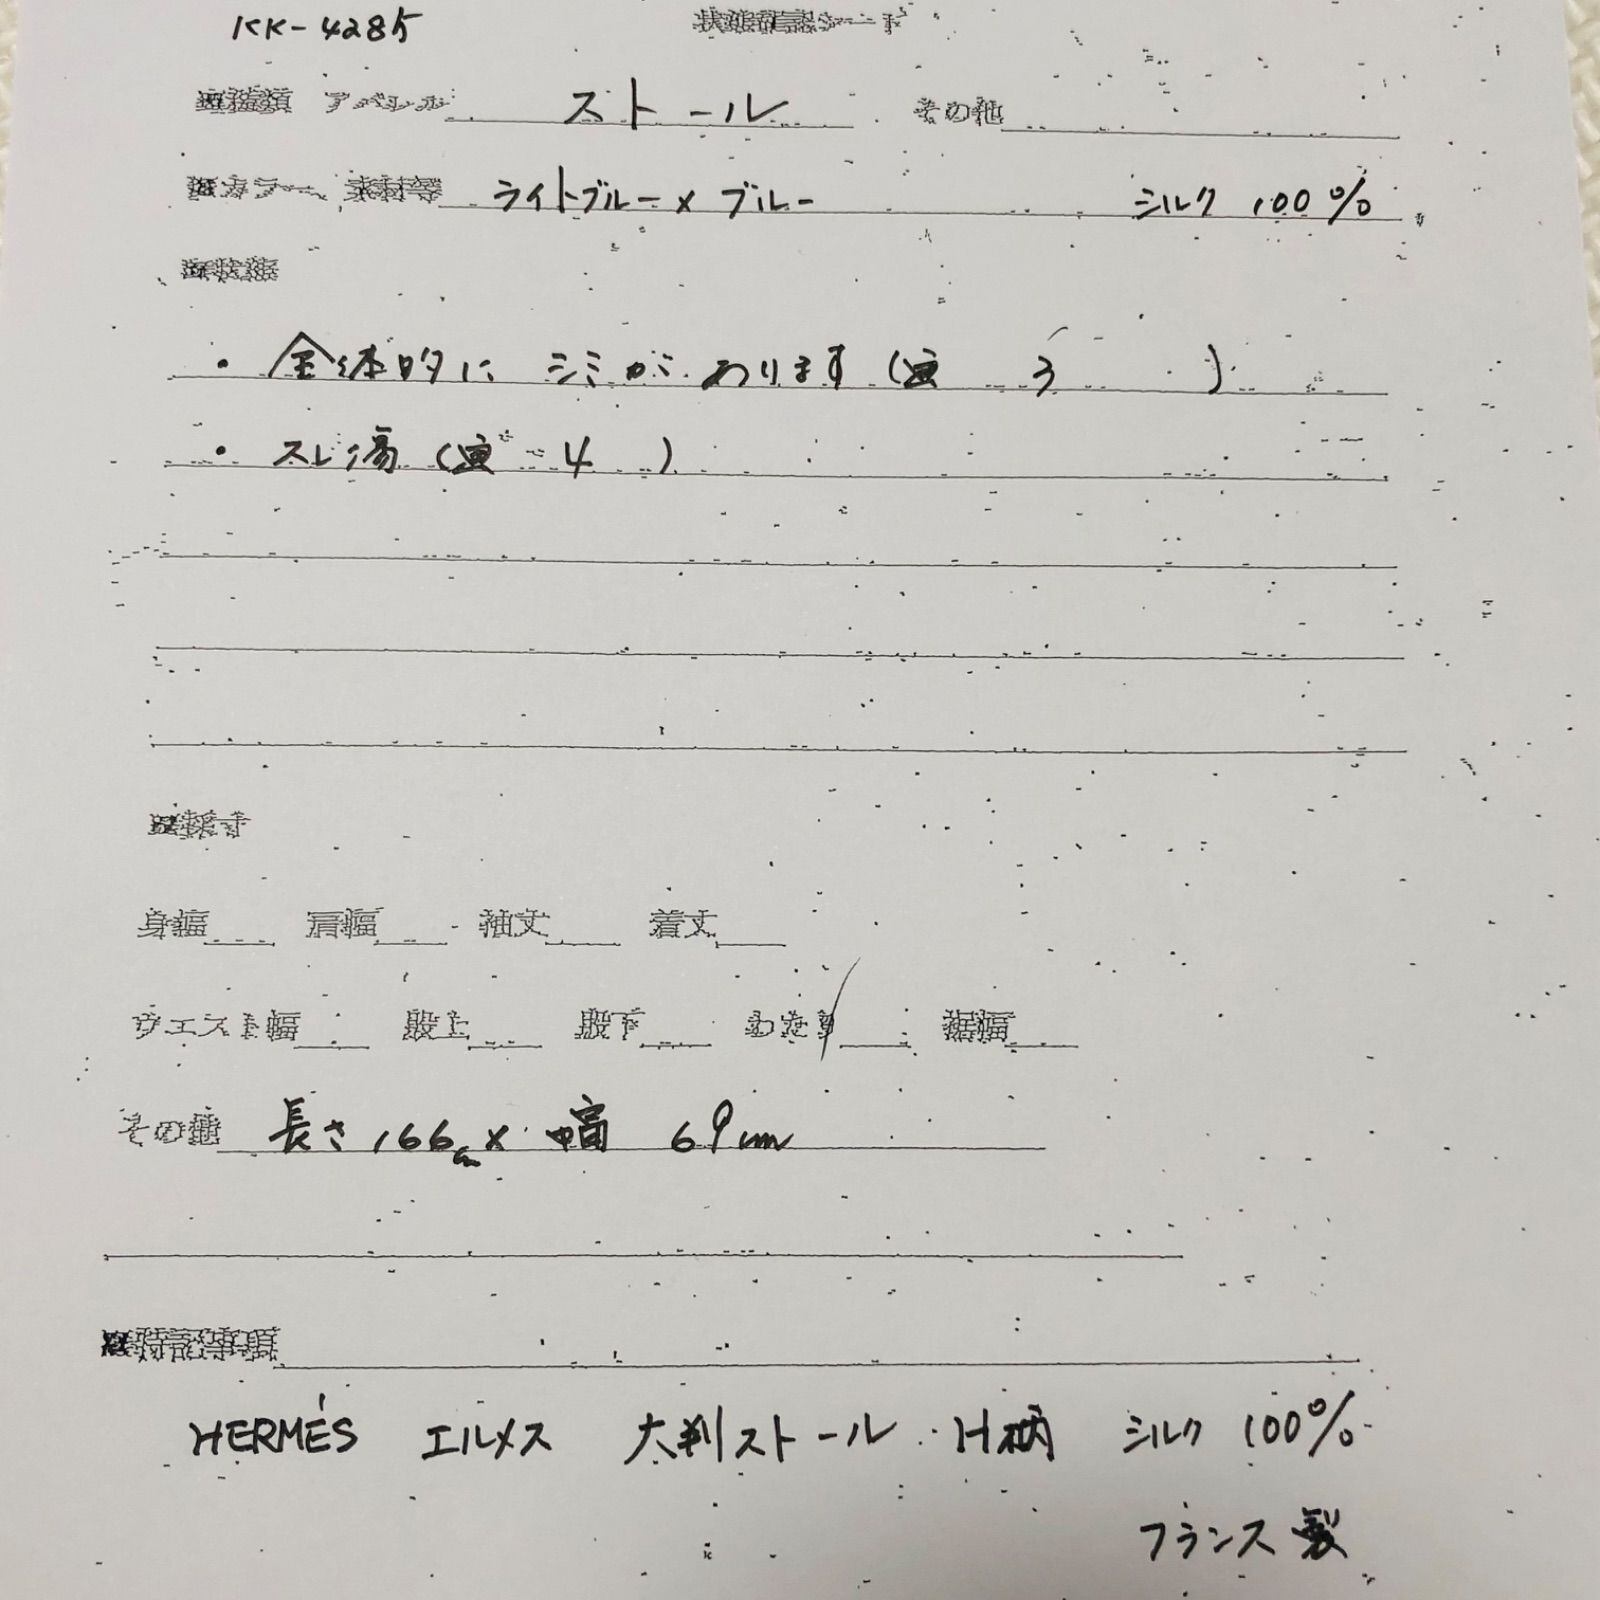 KK-4285 状態確認シート
■種類 アパレル ストール その他
■カラー、素材等 ライトブルー×ブルー シルク 100%
■状態
・全体的に シミが あります (画 3 )
・スレ傷 (画 4 )
■採寸
身幅 肩幅 袖丈 着丈
ウエスト幅 股上 股下 わたり 裾幅
その他 長さ 166cm × 幅 69cm
■特記事項
HERMÉS エルメス 大判ストール H柄 シルク 100%
フランス製